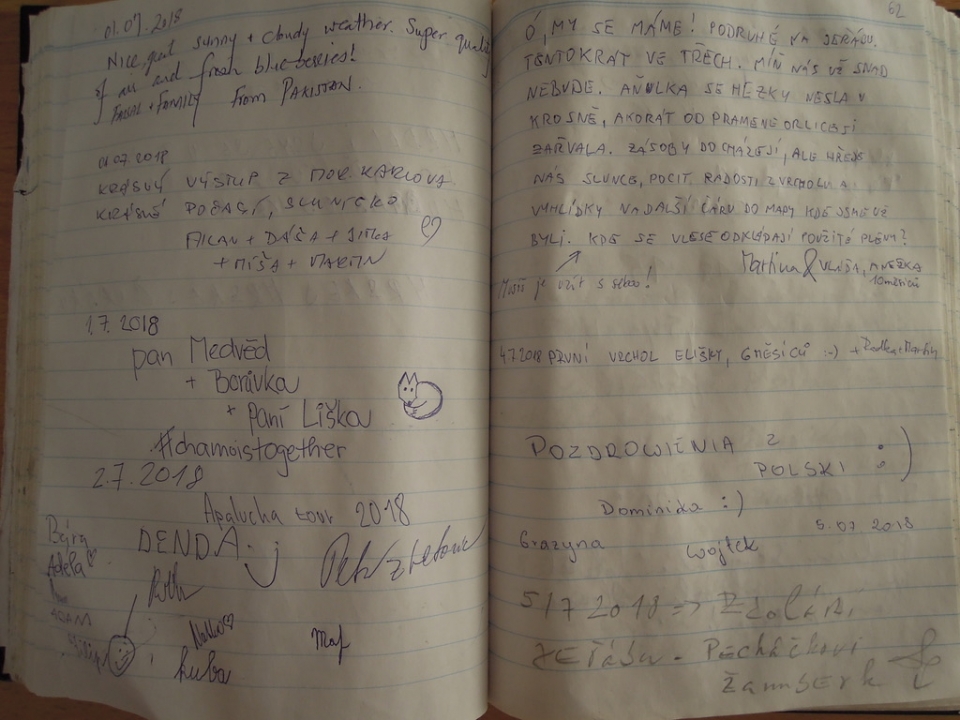 01.07.2018
Nice, great sunny + cloudy weather. Super quality
of air and fresh blueberries!
+ FAMILY From PAKISTAN.
01.07.2018
KRÁSNÝ VÝSTUP Z KARLOVA
KRÁSNÉ POČASÍ, SLUNÍČKO
MILAN + DÁŠA + JITKA
+ MÍŠA + MARTIN
1.7.2018
pan Medvěd
+ Borůvka
+ paní Liška
#chamoistogether
2.7.2018
Apalucha tour 2018
Bára
Adéla
DENDA :j
ADAM
Kuba
62
Ó, MY SE MÁME! PODRUHÉ NA JEŘÁBU.
TENTOKRÁT VE TŘECH. MÍŇ NÁS UŽ SNAD
NEBUDE. SE HEZKY NESLA V
KROSNĚ, AKORÁT OD PRAMENE ORLICE SI
ZAŘVALA. ZÁSOBY DOCHÁZEJÍ, ALE HŘEJE
NÁS SLUNCE, POCIT RADOSTI Z VRCHOLU A
VYHLÍDKY NA DALŠÍ ČÁRU DO MAPY KDE JSME UŽ
BYLI. KDE SE V LESE ODKLÁDAJÍ POUŽITÉ PLENY?
Musíš je vzít s sebou!
Martina & ANEŽKA
10 měsíců
4.7.2018 PRVNÍ VRCHOL ELIŠKY, 6 MĚSÍCŮ :-) + Radka + Martin
POZDROWIENIA Z
POLSKI :)
Dominika :)
5.07 2018
Grazyna
Wojtek
5/7 2018 => Zdolání
JEŘÁBU -
Žamberk